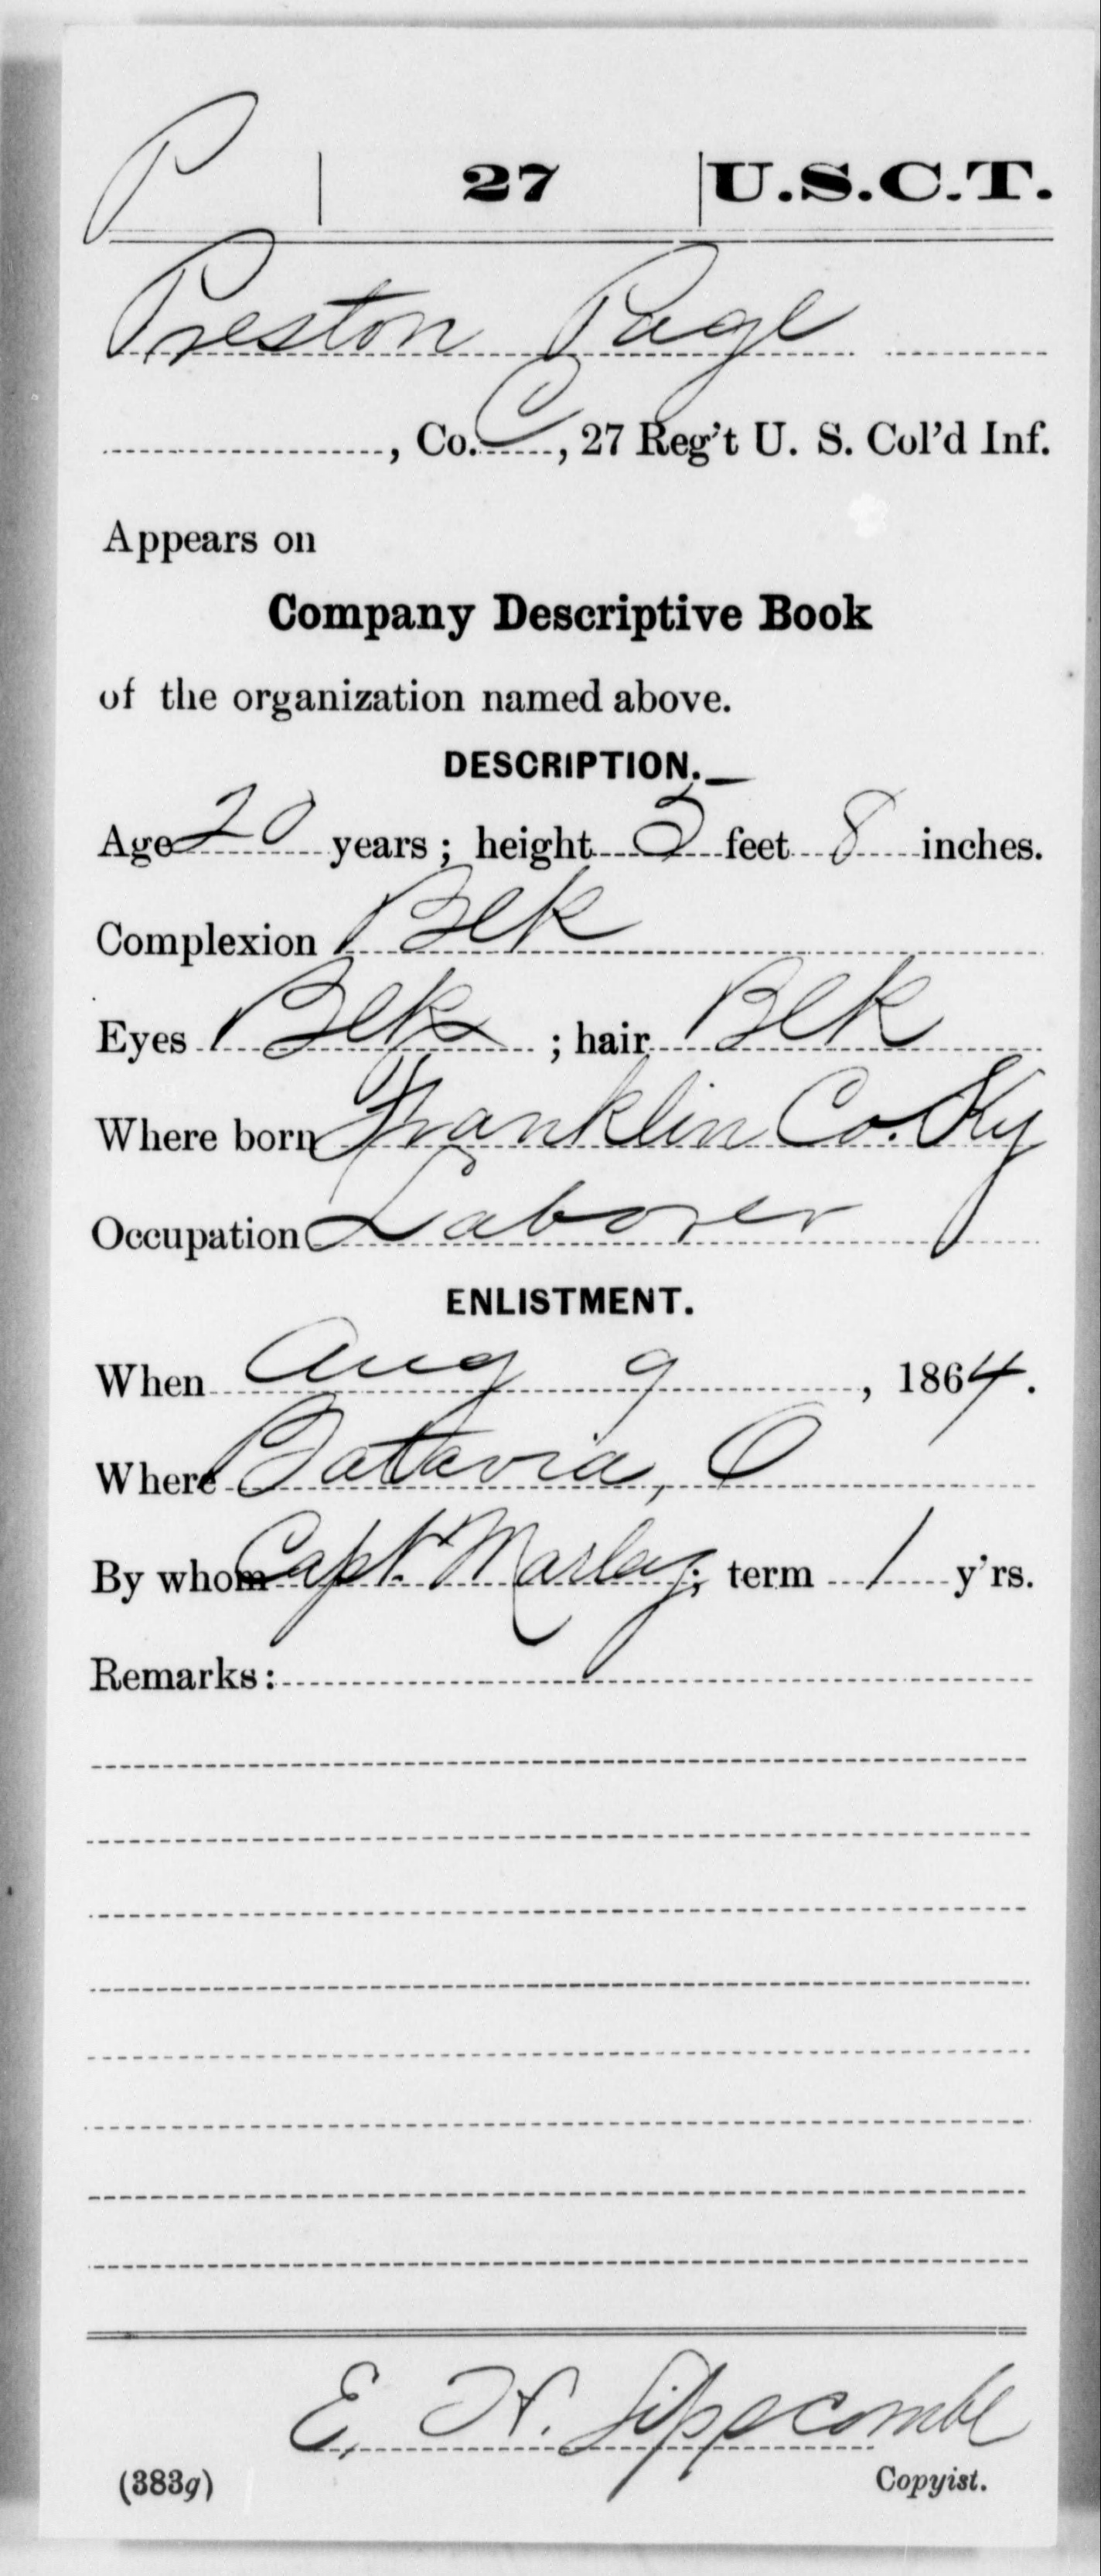 P | 27 | U.S.C.T.
Preston Page
, Co. C, 27 Reg't U. S. Col'd Inf.
Appears on
Company Descriptive Book
of the organization named above.
DESCRIPTION.
Age 20 years; height 5 feet 8 inches.
Complexion Blk
Eyes Blk; hair Blk
Where born Franklin Co. Ky
Occupation Laborer
ENLISTMENT.
When Aug 9, 1864.
Where Batavia, O
By whom Capt. Marlay; term 1 y'rs.
Remarks:
E. H. Lippcombe
(383g) Copyist.